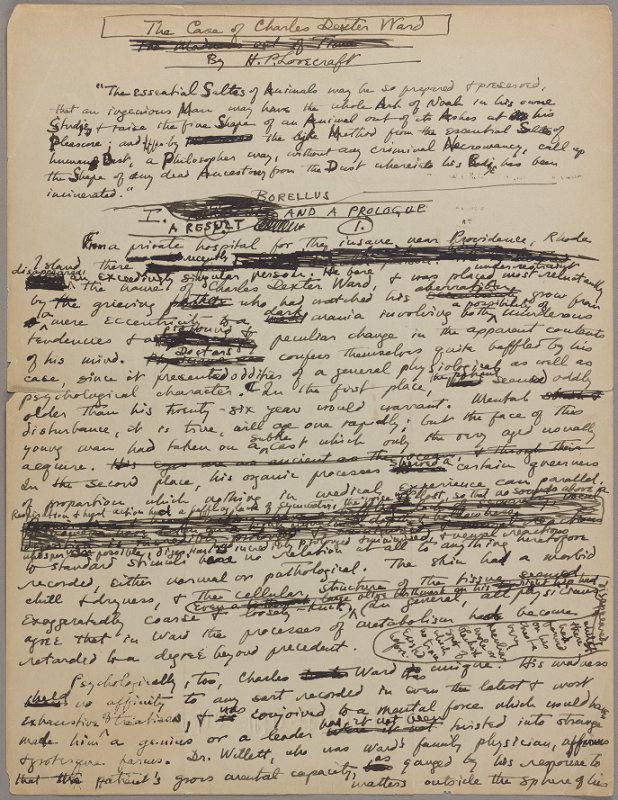 The Case of Charles Dexter Ward
By H. P. Lovecraft
"The essential Saltes of Animals may be so prepared & preserved,
that an ingenious Man may have the whole Ark of Noah in his owne
Studie, & raise the fine Shape of an Animal out of its Ashes at his
Pleasure; and by the lyke Method from the essential Saltes of
humane Dust, a Philosopher may, without any criminal Necromancy, call up
the Shape of any dead Ancestour from the Dust whereinto his Bodie has been
incinerated."
BORELLUS
I. A RESULT AND A PROLOGUE
1.
From a private hospital for the insane near Providence, Rhode
Island, there recently
disappeared an exceedingly singular person. He bore
the name of Charles Dexter Ward, & was placed under restraint most reluctantly
by the grieving father who had watched his aberration grow from
a mere eccentricity to a dark mania involving both a possibility of murderous
tendencies & a profound & peculiar change in the apparent contents
of his mind. Doctors confess themselves quite baffled by his
case, since it presented oddities of a general physiological as well as
psychological character. In the first place, the patient seemed oddly
older than his twenty-six years would warrant. Mental
disturbance, it is true, will age one rapidly; but the face of this
young man had taken on a subtle cast which only the very aged usually
acquire. His eyes are as ancient as the
In the second place, his organic processes shewed a certain queerness
of proportion which nothing in medical experience can parallel.
Respiration & heart action had a baffling lack of symmetry, the voice was lost, so that no sounds above a
whisper were possible, digestion was incredibly prolonged & minimised, & neural reactions
to standard stimuli bore no relation at all to anything heretofore
recorded, either normal or pathological. The skin had a morbid
chill & dryness, & the cellular structure of the tissue seemed
exaggeratedly coarse & loosely knit. Even a large olive birthmark on his right hip had
disappeared, whilst there had formed on his chest a very peculiar mole or blackish spot of which no trace existed before.
In general, all physicians
agree that in Ward the processes of metabolism had become
retarded to a degree beyond precedent.
Psychologically, too, Charles Ward was unique. His madness
held no affinity to any sort recorded in even the latest & most
exhaustive of treatises, & was conjoined to a mental force which would have
made him a genius or a leader had it not been twisted into strange
& grotesque forms. Dr. Willett, who was Ward's family physician, affirms
that the patient's gross mental capacity, as gauged by his response to
matters outside the sphere of his